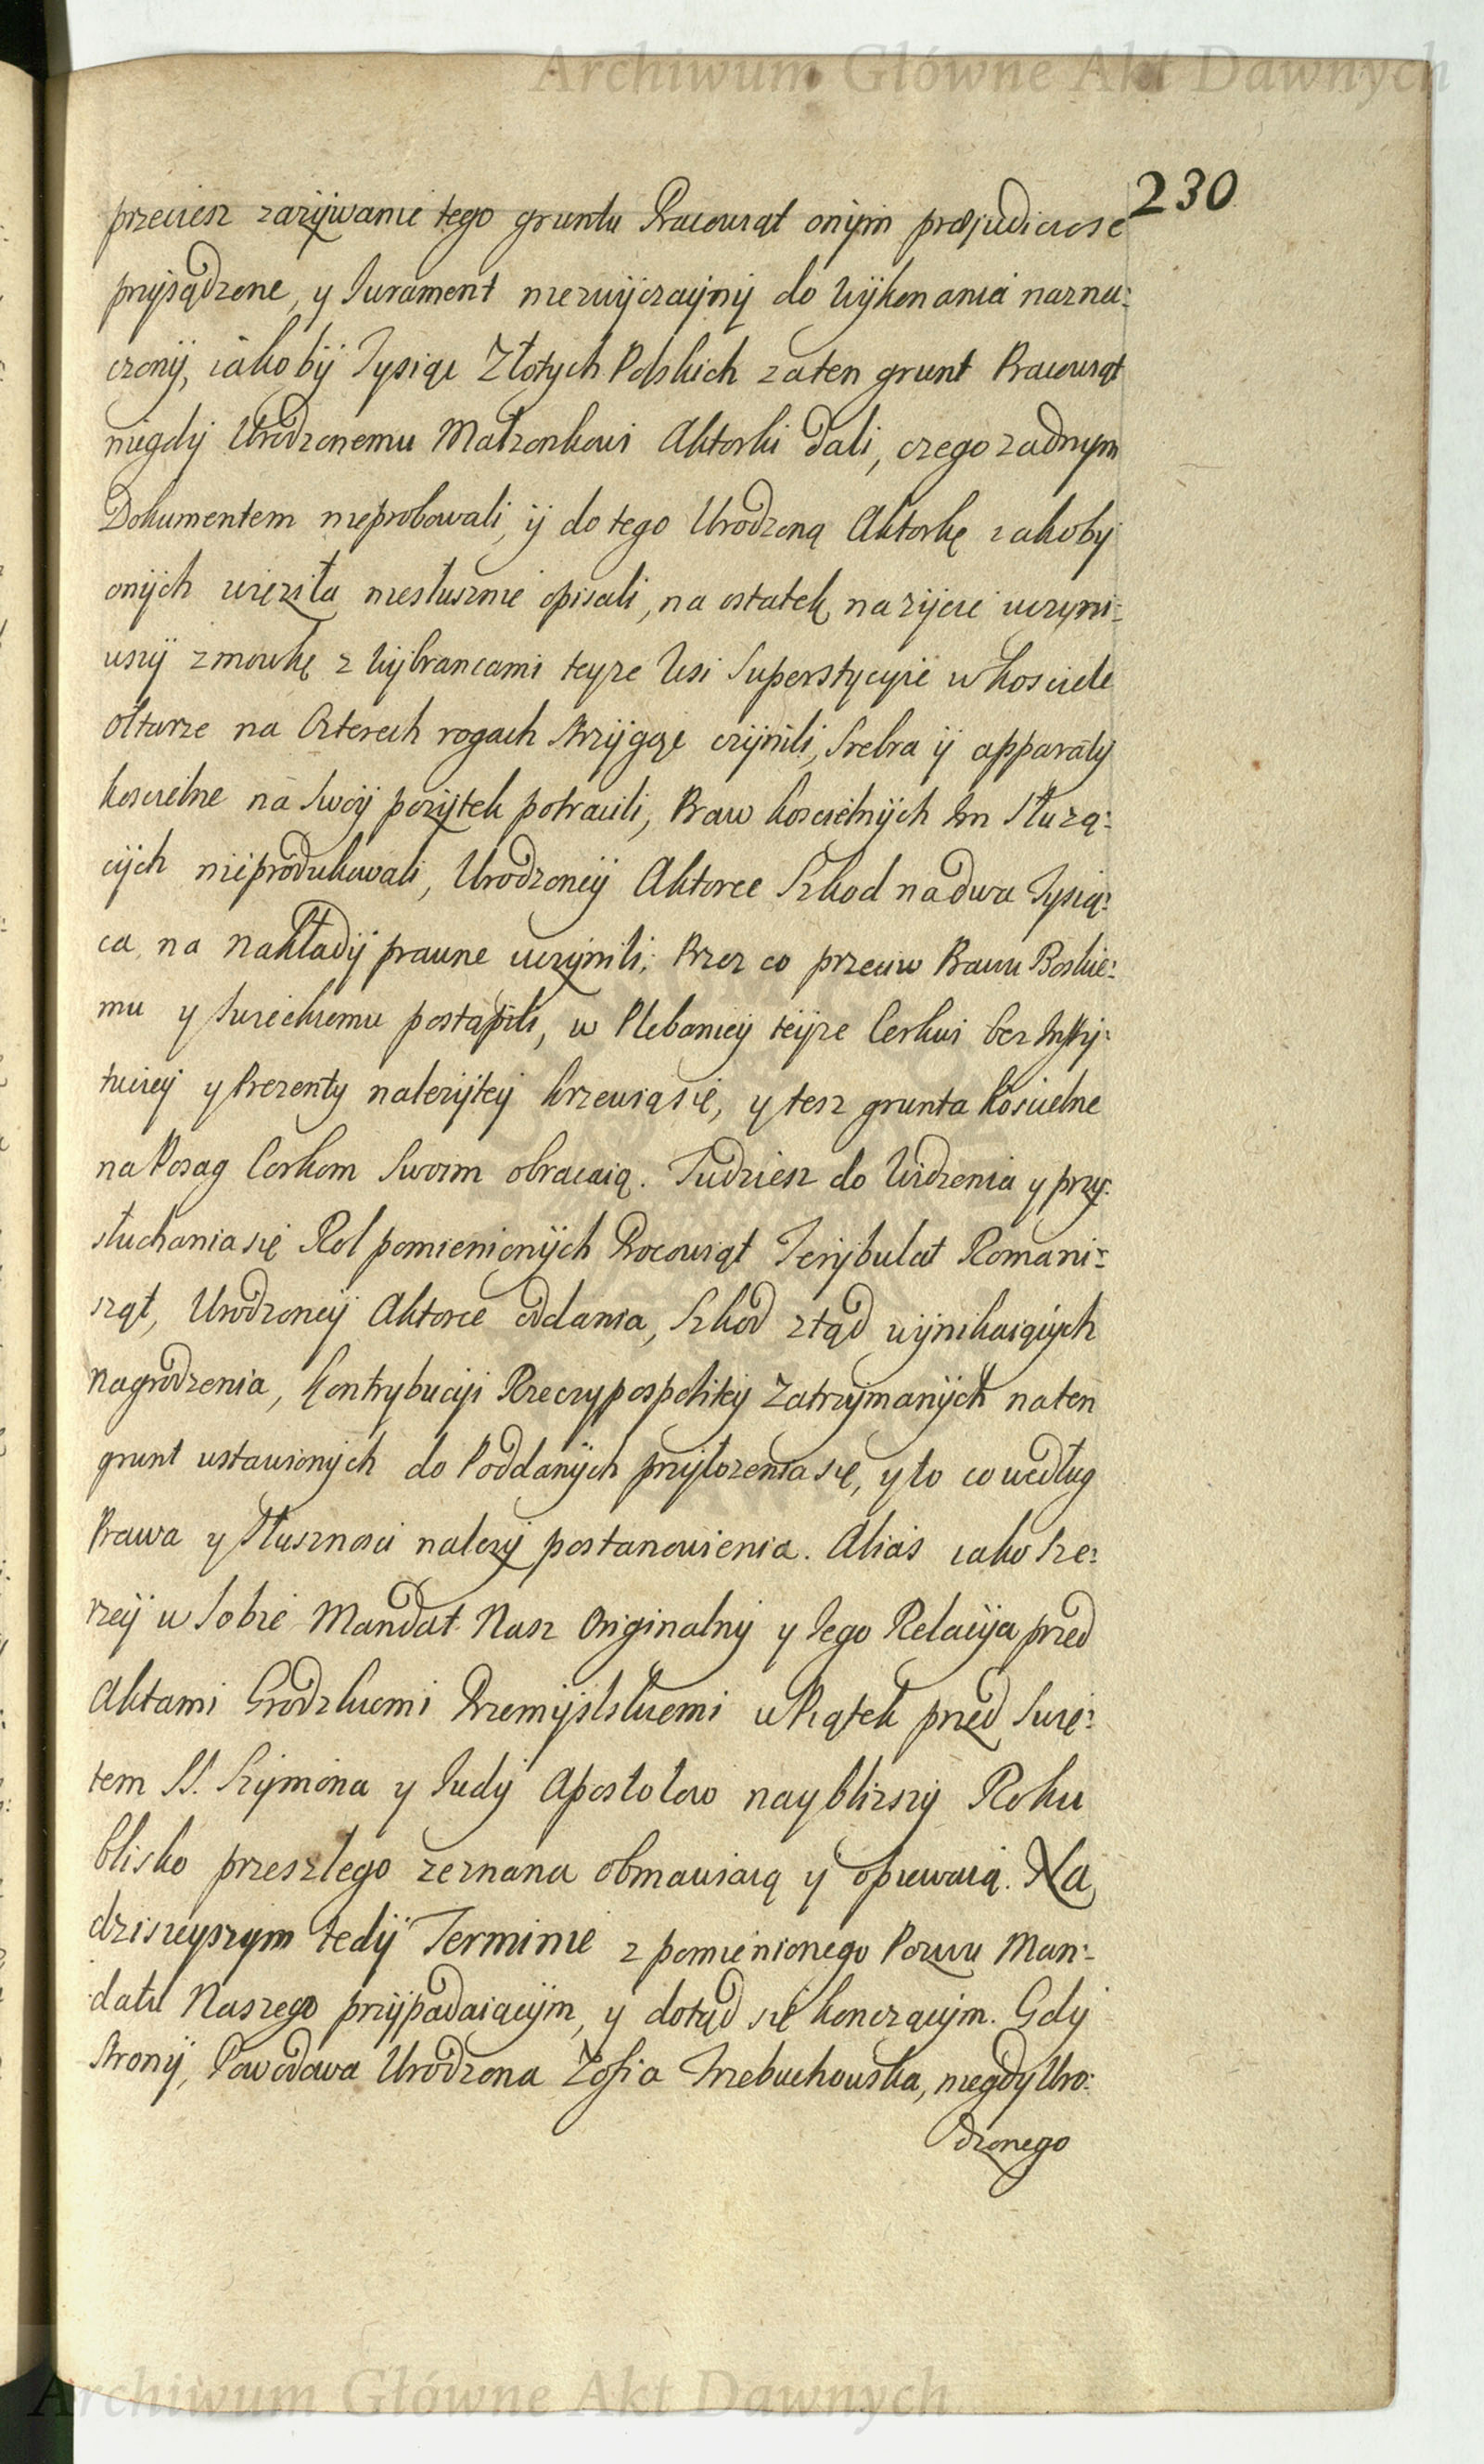 Archiwum Główne Akt Dawnych
230
przeciesz zazijwanie tego gruntu Pracowiąt onijm præjudiciose
przysądzone, y Jurament niezwijczaijnij do Wijkonania nazna:
czonij, iakobij Tysiąc Złotych Polskich zaten grunt Pracowiąt
nigdij Urodzonemu Małzonkowi Aktorki dali, czego zadnym
Dokumentem nieprobowali, ij do tego Urodzoną Aktorkę iakoby
onijch więziła niesłusznie opisali, na ostatek, na zijcie uczyni:
wszij zmowkę z Wijbrancami teyze Wsi Superstycyie w kosciele
ołtarze na Czterech rogach strzijgąc czijnili, Srebra ij apparaty
koscielne na Swoij pozijtek potracili, Praw koscielnijch Im Słuzą:
cijch nieprodukowali, Urodzoneij Aktorce Szkod na dwa Tysią:
ca, na nakładij prawne uczijnili; Przez co przeciw Prawu Boskie:
mu y Swieckiemu postąpili, w Plebanieij teijze Cerkwi bez Insty:
tuciej y Prezenty nalezijtej krzewiąsię, y tesz grunta Koscielne
na Posag Corkom Swoim obracaią. Tudziesz do Widzenia y przy:
słuchania się Rol pomienionijch Procowiąt Terijbulat Romani:
sząt, Urodzoneij Aktorce oddania, Szkod ztąd wijnikaiącijch
nagrodzenia, Kontrybuciji Rzeczypospolitej Zatrzijmanijch naten
grunt ustawionijch do Poddanijch przijłozenia się, y to co według
Prawa y Słusznosci nalezij postanowienia. Alias iako Sze:
rzeij w Sobie Mandat Nasz Originalnij y Jego Relacija przed
Aktami Grodzkiemi Przemijslskiemi w Piątek przed Swię:
tem SS. Szijmona y Judij Apostołow nayblizszij Roku
blisko przeszłego zeznana obmawiaią y opiewaią. Na
dzisieyszym tedij Terminie z pomienionego Pozwu Man:
datu Naszego przijpadaiącijm, y dotąd się konczącijm. Gdij
Stronij, Powodowa Urodzona Zofia Trzebuchowska, niegdy Uro:
dzonego
Archiwum Główne Akt Dawnych